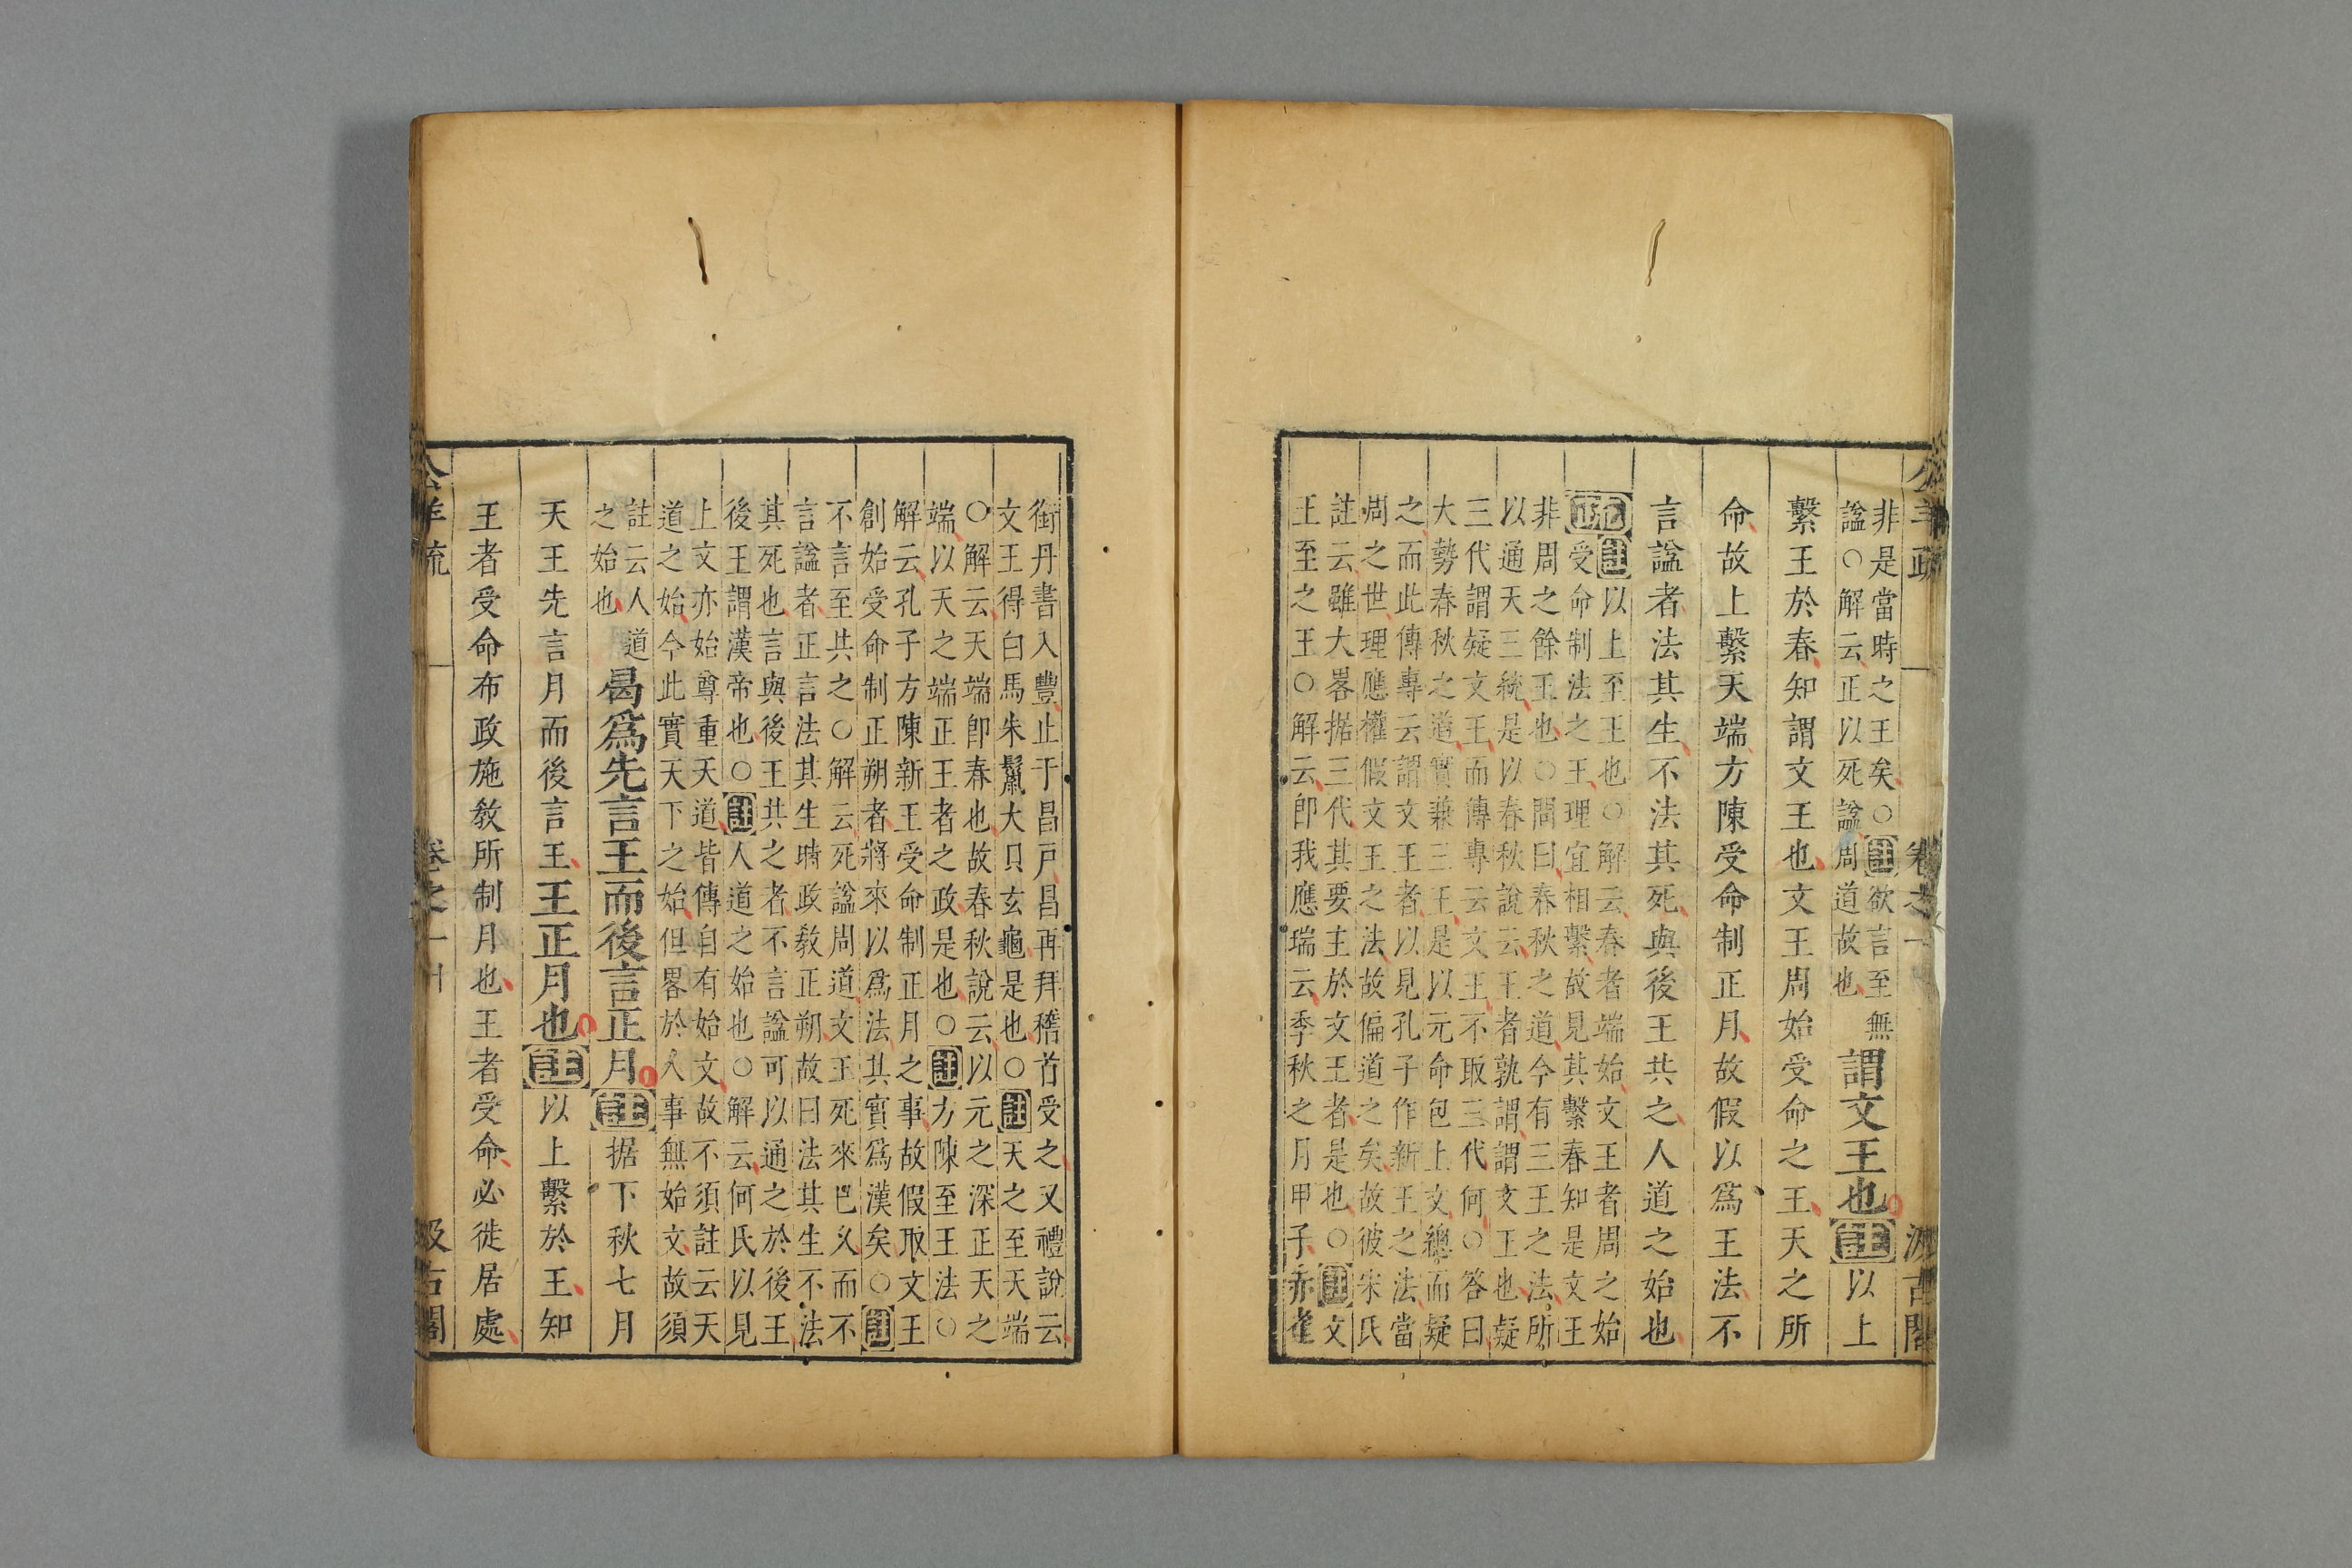 非是當時之王矣○註欲言至無
諡○解云正以死諡周道故也
謂文王也註以上
繫王於春知謂文王也文王周始受命之王天之所
命故上繫天端方陳受命制正月故假以爲王法不
言諡者法其生不法其死與後王共之人道之始也
疏註以上至王也○解云春者端始文王者周之始
受命制法之王理宜相繫故見其繫春知是文王
非周之餘王也○問曰春秋之道今有三王之法所
以通天三統是以春秋說云王者孰謂謂文王也疑
三代謂疑文王而傳專云文王不取三代何○答曰
大勢春秋之道實兼三王是以元命包上文總而疑
之而此傳專云謂文王者以見孔子作新王之法當
周之世理應權假文王之法故偏道之矣故彼宋氏
註云雖大畧据三代其要主於文王者是也○註文
王至之王○解云卽我應瑞云季秋之月甲子赤雀
公羊疏 卷之一 汲古閣
銜丹書入豐止于昌戸昌再拜稽首受之又禮說云
文王得白馬朱鬣大貝玄龜是也○註天之至天端
○解云天端卽春也故春秋說云以元之深正天之
端以天之端正王者之政是也○註方陳至王法○
解云孔子方陳新王受命制正月之事故假取文王
創始受命制正朔者將來以爲法其實爲漢矣○註
不言至共之○解云死諡周道文王死來已乆而不
言諡者正言法其生時政教正朔故曰法其生不法
其死也言與後王共之者不言諡可以通之於後王
後王謂漢帝也○註人道之始也○解云何氏以見
上文亦始尊重天道皆傳自有始文故不須註云天
道之始今此實天下之始但畧於人事無始文故須
註云人道
之始也
曷爲先言王而後言正月註据下秋七月
天王先言月而後言王王正月也註以上繫於王知
王者受命布政施教所制月也王者受命必徙居處
公羊疏 卷之一 汲古閣